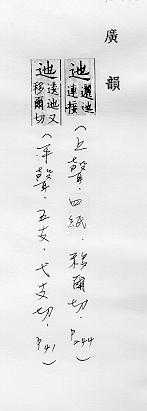 廣韻
迆 邐迆連接 (上聲．四紙．移爾切．P244)
迆 逶迆又移爾切 (平聲．五支．弋支切．P41)